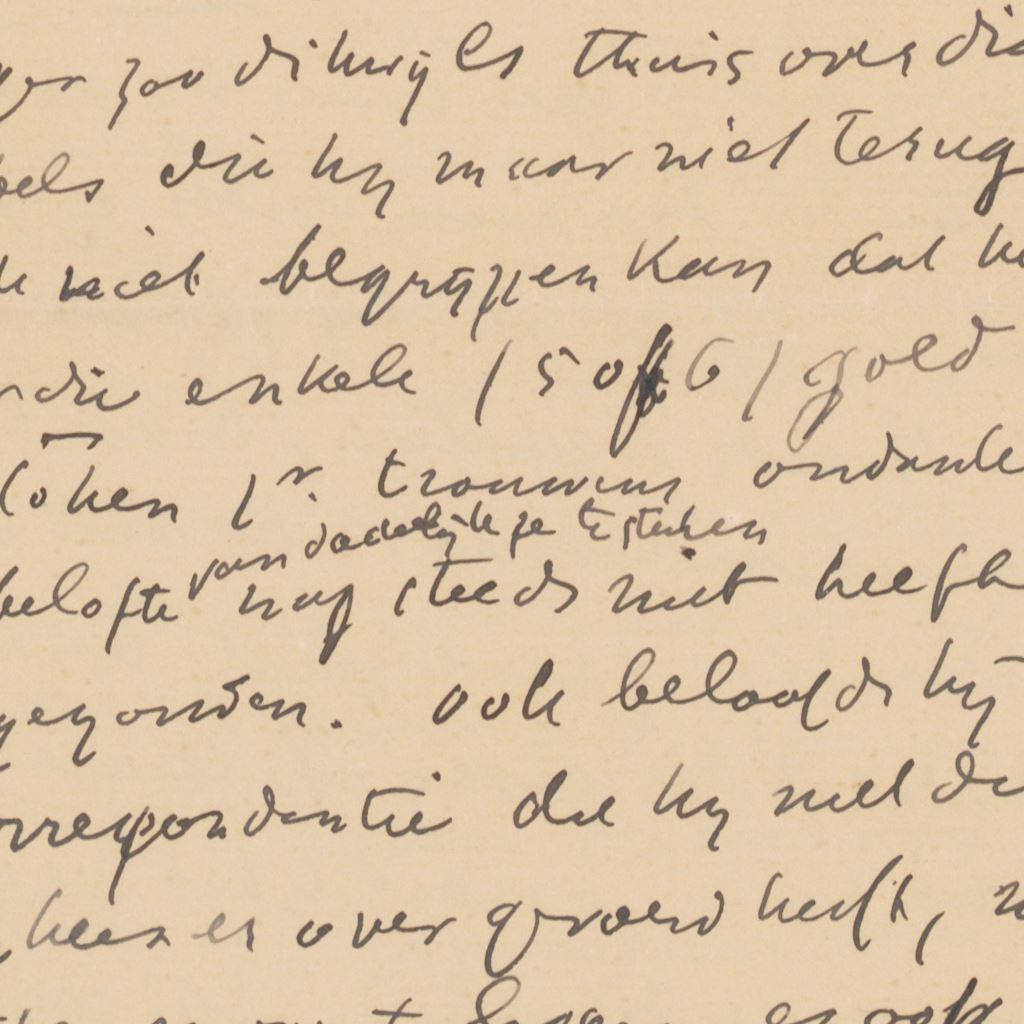 zoo dikwijls thuis over die
die hij maar niet terug
niet begrijpen kan dat
die enkele (5 of 6) goed
trouwens ondanks
van dadelijk ze te sturen
belofte nog steeds niet heeft
gezonden. ook beloofde hij
correspondentie die hij met de
heer er over gevoerd heeft,